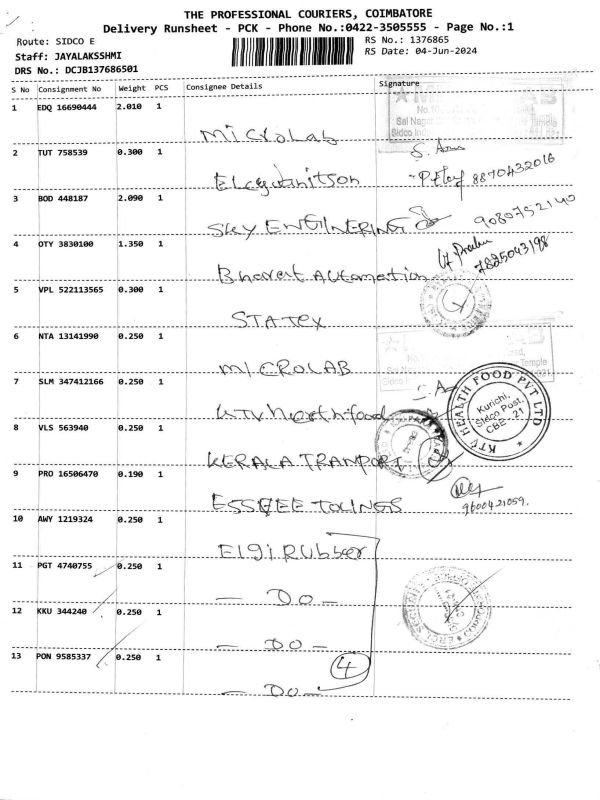 THE PROFESSIONAL COURIERS, COIMBATORE
Delivery Runsheet - PCK - Phone No.:0422-3505555 - Page No.:1
Route: SIDCO E
RS No.: 1376865
Staff: JAYALAKSSHMI
RS Date: 04-Jun-2024
DRS No.: DCJB137686501
S No Consignment No Weight PCS Consignee Details Signature
1 EDQ 16690444 2.010 1
MicroLab
2 TUT 758539 0.300 1
8870432016
3 BOD 448187 2.090 1
SKY ENGINERING 9080752140
4 OTY 3830100 1.350 1
Bharat Automation 7825043198
5 VPL 522113565 0.300 1
STATEX
6 NTA 13141990 0.250 1
MICROLAB
7 SLM 347412166 0.250 1
KTV HEALTH FOOD PVT LTD
Kurichi,
Sidco Post,
CBE - 21
8 VLS 563940 0.250 1
KERALA TRANPORT
9 PRO 16506470 0.190 1
ESSGEE TOLINGS 9600421059.
10 AWY 1219324 0.250 1
Elgi Rubber
11 PGT 4740755 0.250 1
- Do -
12 KKU 344240 0.250 1
- Do -
13 PON 9585337 0.250 1
4
- Do -